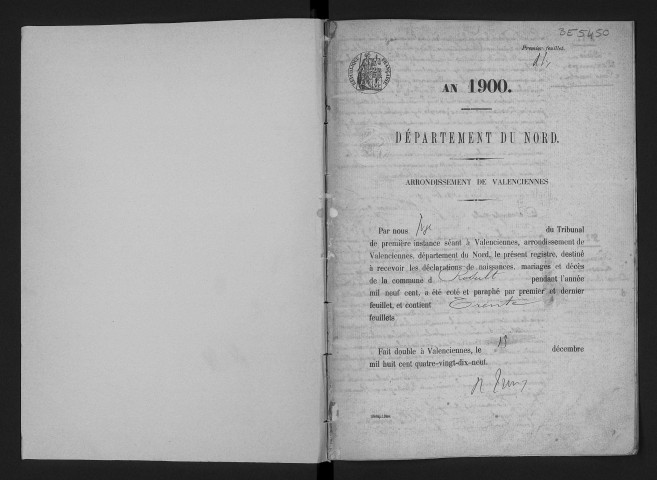 3E5450
Premier feuillet.
AN 1900.
DÉPARTEMENT DU NORD.
ARRONDISSEMENT DE VALENCIENNES
Par nous Juge du Tribunal
de première instance séant à Valenciennes, arrondissement de
Valenciennes, département du Nord, le présent registre, destiné
à recevoir les déclarations de naissances, mariages et décès
de la commune d pendant l'année
mil neuf cent, a été coté et paraphé par premier et dernier
feuillet, et contient Trente
feuillets
Fait double à Valenciennes, le décembre
mil huit cent quatre-vingt-dix-neuf.